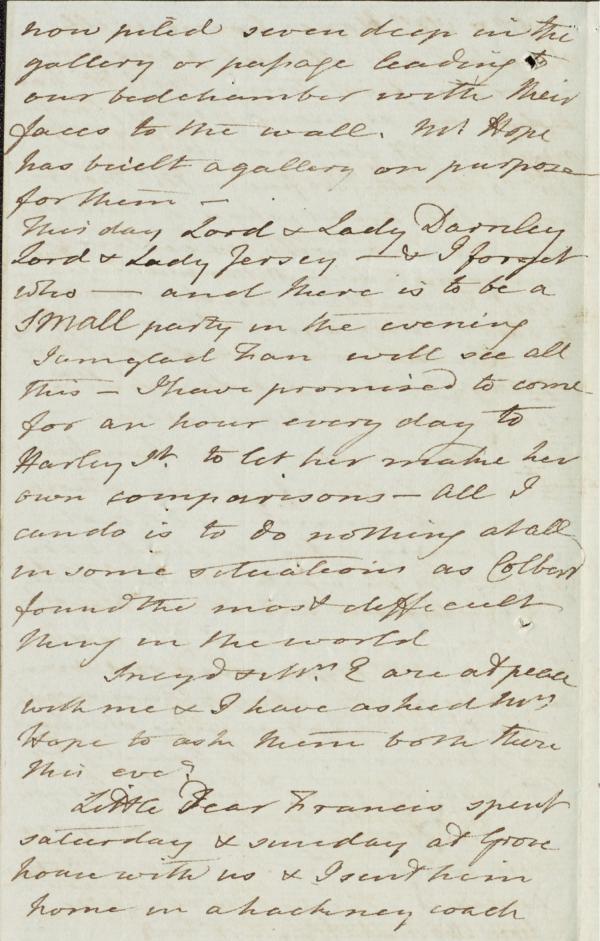 now piled seven deep in the
gallery or passage leading to
our bedchamber with their
faces to the wall. Mr Hope
has built a gallery on purpose
for them —
This day Lord & Lady Darnley
Lord & Lady Jersey — & I forget
who — and there is to be a
SMALL party in the evening
I am glad Fan will see all
this — I have promised to come
for an hour every day to
Harley St. to let her make her
own comparisons — all I
can do is to do nothing at all
in some situations as Colbert
found the most difficult
thing in the world
& Mrs E are at peace
with me & I have asked Mrs
Hope to ask them both there
this eve?
Little Dear Francis spent
saturday & sunday at Grove
house with us & I sent him
home in a hackney coach